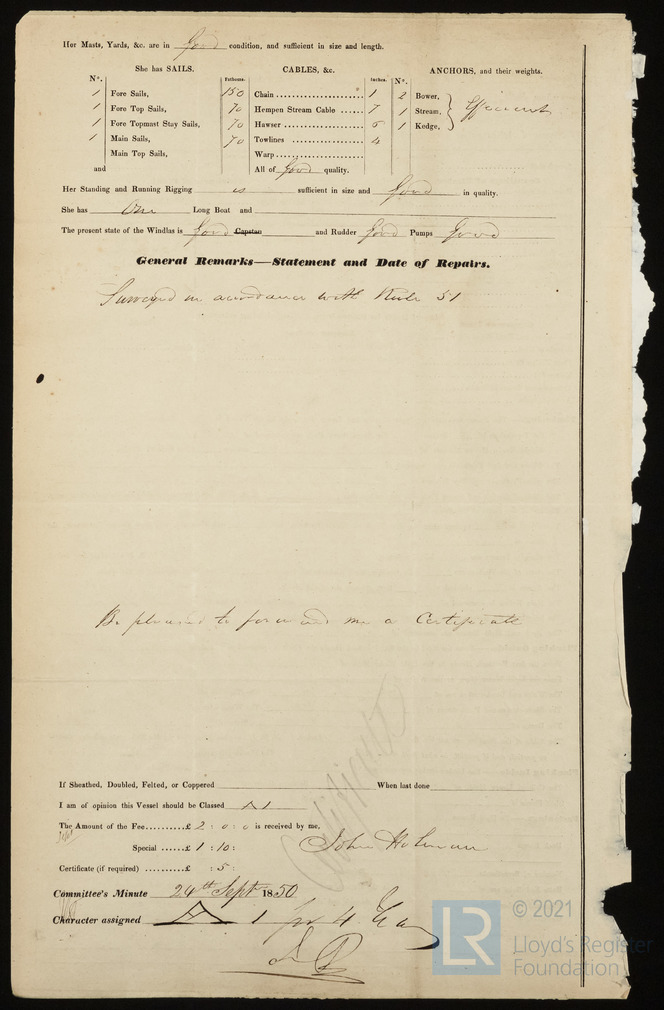 Her Masts, Yards, &c. are in Good condition, and sufficient in size and length.
She has SAILS.
N°.
1 Fore Sails,
1 Fore Top Sails,
1 Fore Topmast Stay Sails,
1 Main Sails,
Main Top Sails,
and
CABLES, &c.
Fathoms. Inches.
150 Chain 1
70 Hempen Stream Cable 7
70 Hawser 5
70 Towlines 4
Warp
All of Good quality.
ANCHORS, and their weights.
N°.
2 Bower,
1 Stream,
1 Kedge,
Efficient
Her Standing and Running Rigging is sufficient in size and Good in quality.
She has One Long Boat and
The present state of the Windlas is Good Capstan and Rudder Good Pumps Good
General Remarks—Statement and Date of Repairs.
Surveyed in accordance with Rule 51
Be pleased to forward me a Certificate
Certificate
If Sheathed, Doubled, Felted, or Coppered When last done
I am of opinion this Vessel should be Classed A1
The Amount of the Fee..........£ 2 : 0 : 0 is received by me,
Special ......£ 1 : 10 :
John Holman
Certificate (if required) ........£ : 5 :
Committee's Minute 24th Sept 1850
Character assigned A 1 for 4 Years
LR
© 2021
Lloyd's Register
Foundation